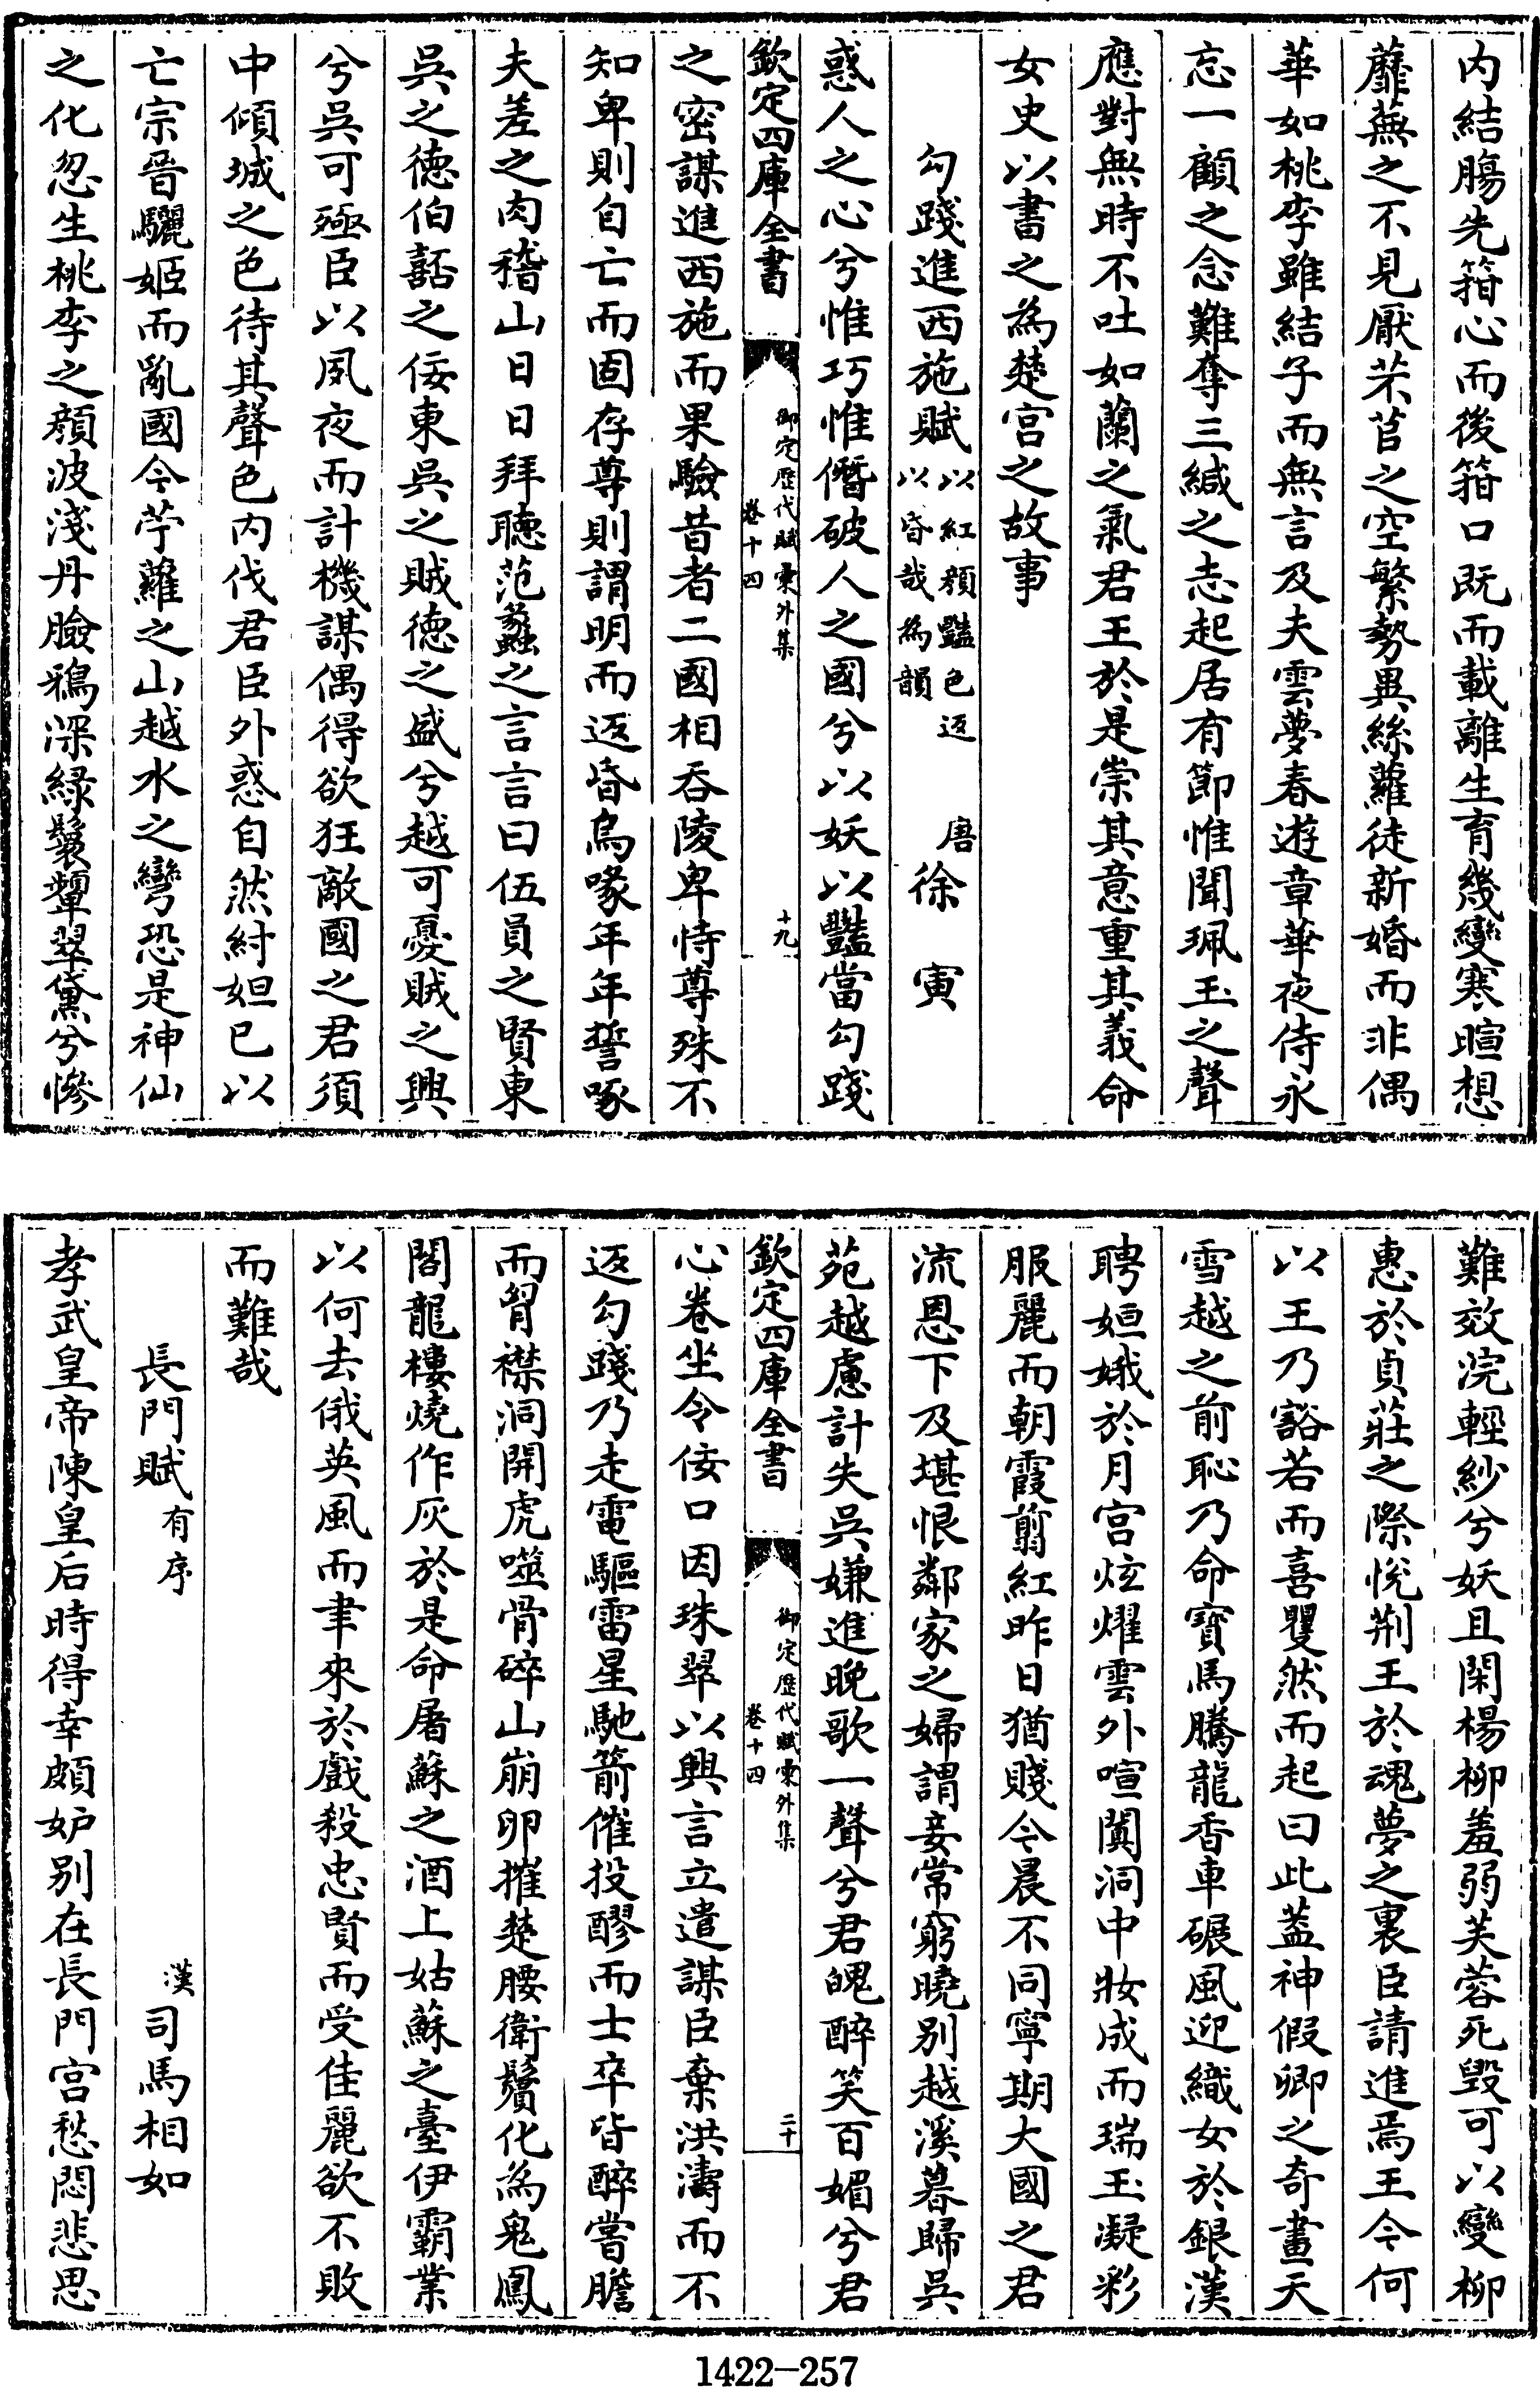 内結腸先箝心而後箝口既而載離生育幾變寒暄想
蘼蕪之不見厭芣苢之空繁勢異絲蘿徒新婚而非偶
華如桃李雖結子而無言及夫雲夢春遊章華夜侍永
忘一顧之念難奪三緘之志起居有節惟聞珮玉之聲
應對無時不吐如蘭之氣君王於是崇其意重其義命
女史以書之為楚宫之故事
勾踐進西施賦以紅顔豔色返以昏哉為韻 唐徐寅
惑人之心兮惟巧惟僭破人之國兮以妖以豔當勾踐
欽定四庫全書 御定歷代賦彚外集 卷十四 十九
之密謀進西施而果驗昔者二國相吞陵卑恃尊殊不
知卑則自亡而固存尊則謂明而返昏烏喙年年誓啄
夫差之肉稽山日日拜聽范蠡之言言曰伍員之賢東
吳之德伯嚭之佞東吳之賊德之盛兮越可憂賊之興
兮吳可殛臣以夙夜而計機謀偶得欲狂敵國之君須
中傾城之色待其聲色内伐君臣外惑自然紂妲已以
亡宗晉驪姬而亂國今苧蘿之山越水之彎恐是神仙
之化忽生桃李之顔波淺丹臉鴉深緑鬟顰翠黛兮慘
難效浣輕紗兮妖且閑楊柳羞弱芙蓉死毁可以變柳
惠於貞莊之際悅荆王於魂夢之裏臣請進焉王令何
以王乃豁若而喜矍然而起曰此葢神假卿之奇畫天
雪越之前恥乃命寶馬騰龍香車碾風迎織女於銀漢
聘姮娥於月宫炫燿雲外喧闐洞中妝成而瑞玉凝彩
服麗而朝霞翦紅昨日猶賤今晨不同寧期大國之君
流恩下及堪恨鄰家之婦謂妾常窮曉别越溪暮歸吳
苑越慮計失吳嫌進晚歌一聲兮君魄醉笑百媚兮君
欽定四庫全書 御定歷代賦彚外集 卷十四 二十
心卷坐令佞口因珠翠以興言立遣謀臣棄洪濤而不
返勾踐乃走電驅雷星馳箭催投醪而士卒皆醉嘗膽
而胷襟洞開虎噬骨碎山崩卵摧楚腰衛鬢化為鬼鳳
閣龍樓燒作灰於是命屠蘇之酒上姑蘇之臺伊霸業
以何去俄英風而聿來於戲殺忠賢而受佳麗欲不敗
而難哉
長門賦有序 漢司馬相如
孝武皇帝陳皇后時得幸頗妒别在長門宫愁悶悲思
1422-257